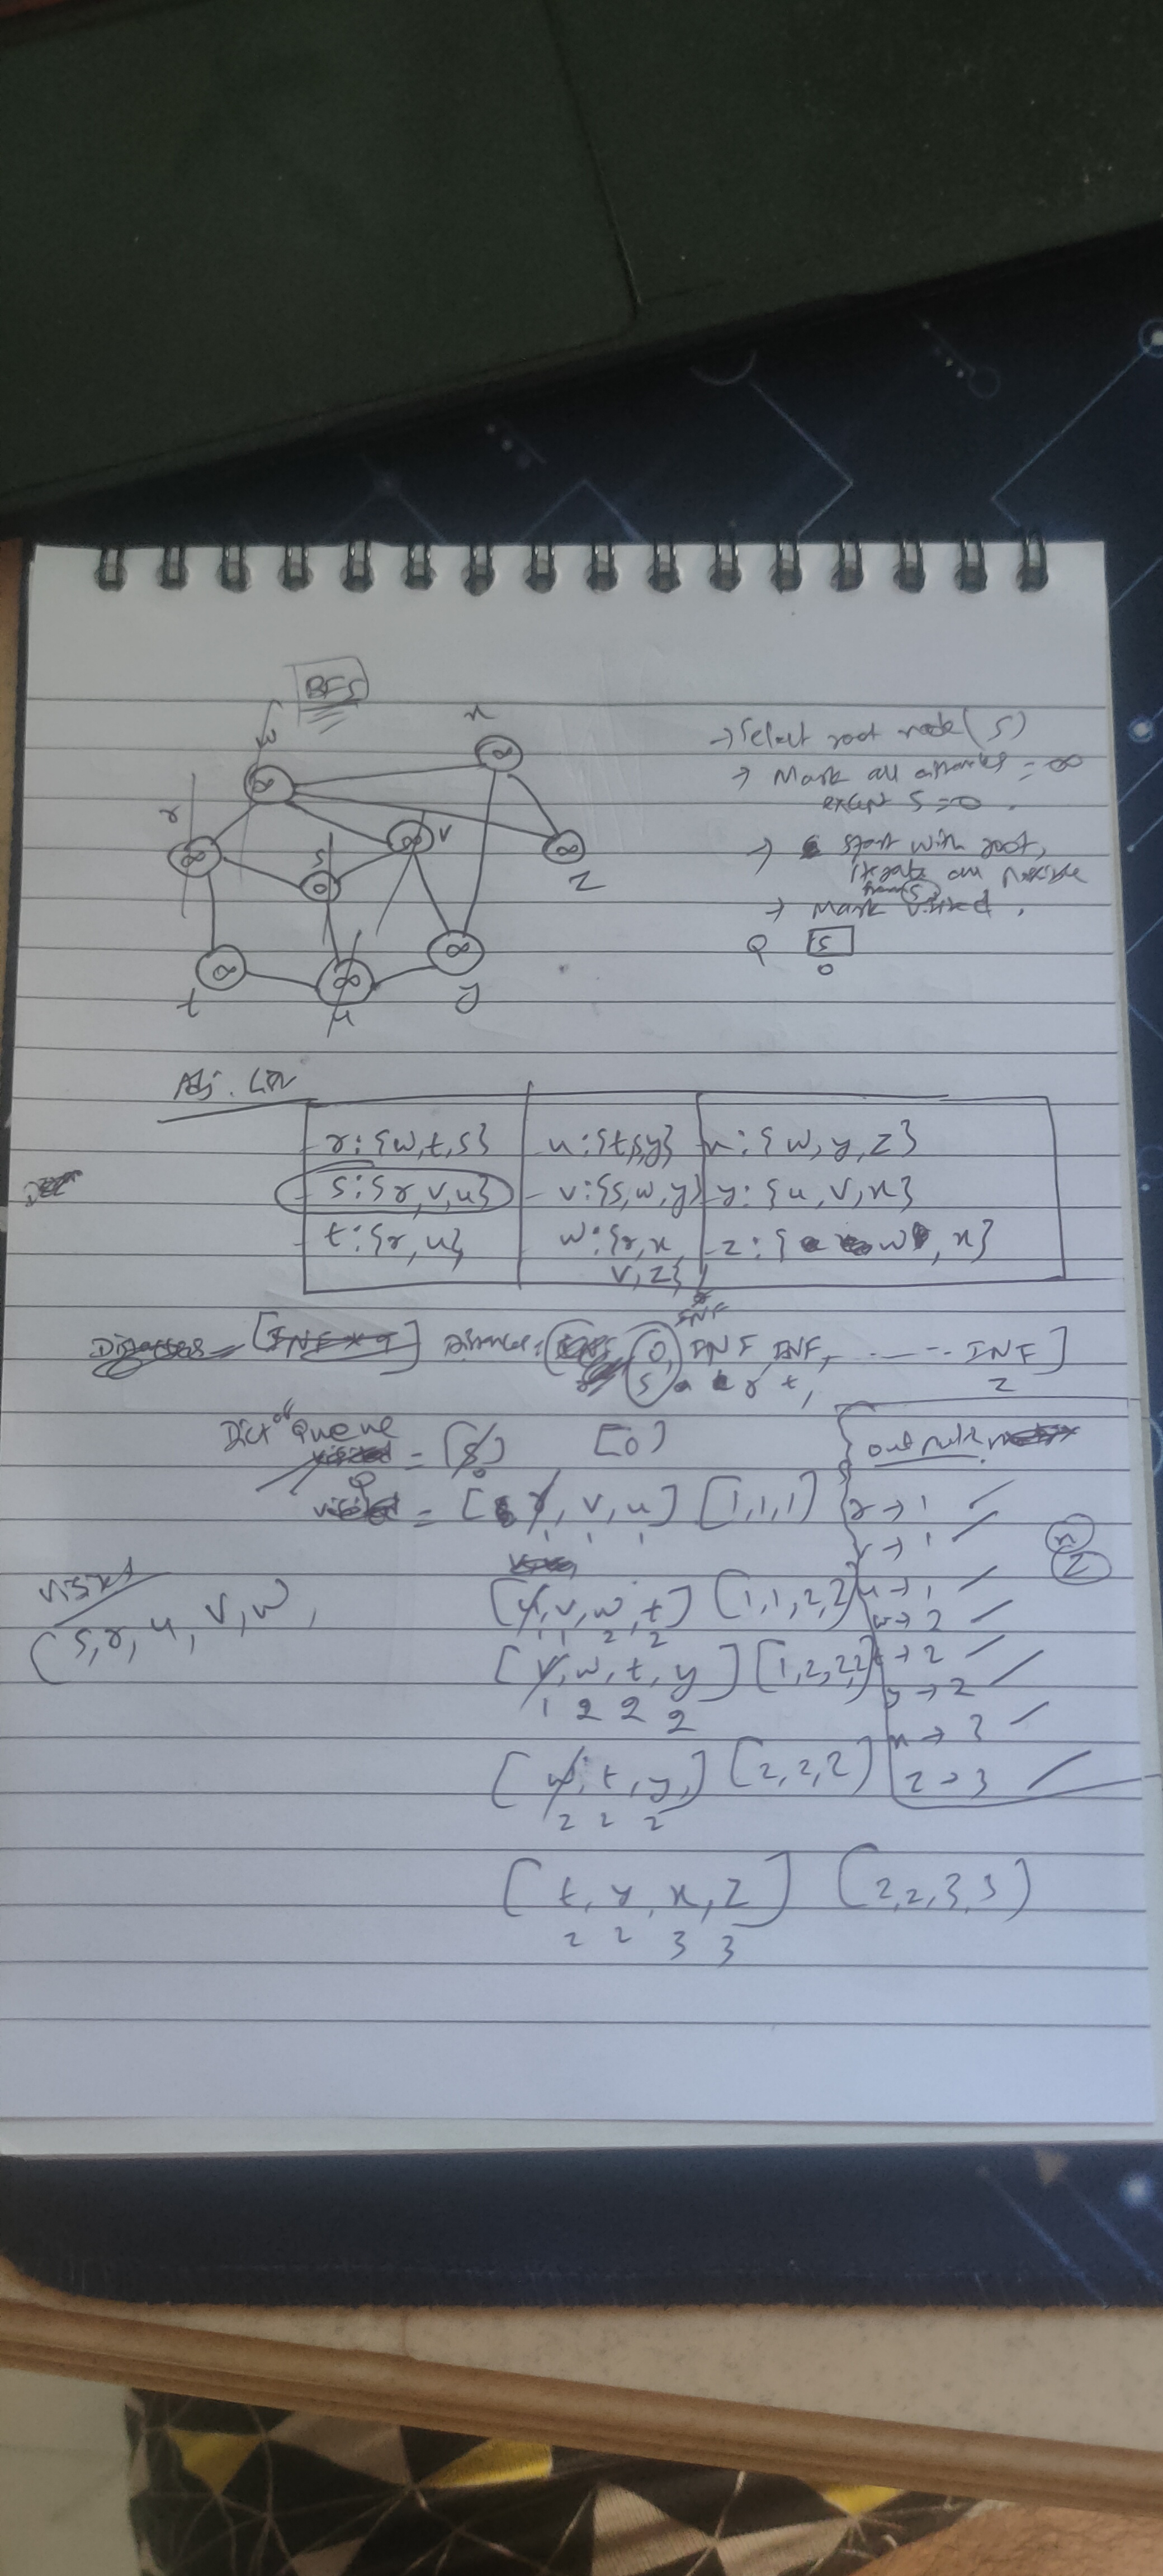 BFS
w
x
r
∞
∞
∞
s
0
∞
v
∞
z
t
∞
∞
u
∞
y
→ Select root node (S)
→ Mark all distances = ∞
except S=0.
→ start with root,
iterate all possible
from S
→ Mark visited.
Q [S]
0
Adj. List
r:{w,t,s} u:{t,s,y} x:{w,y,z}
s:{r,v,u} v:{s,w,y} y:{u,v,x}
t:{r,u} w:{r,x, z:{w,x}
v,z}
INF
Distances = [INF * 9] Distance: 0, INF, INF, ..---. INF]
s r t, z
Dict of Queue = [s] [0]
0
Q
= [r, v, u] [1,1,1]
1 1 1
[u,v,w,t] [1,1,2,2]
1 1 2 2
[v,w,t,y] [1,2,2,2]
1 2 2 2
[w,t,y,] [2,2,2]
2 2 2
[t,y,x,z] [2,2,3,3]
2 2 3 3
visited
[s,r,u,v,w,
output
r→1
v→1
u→1
w→2
t→2
y→2
x→3
z→3
x
z